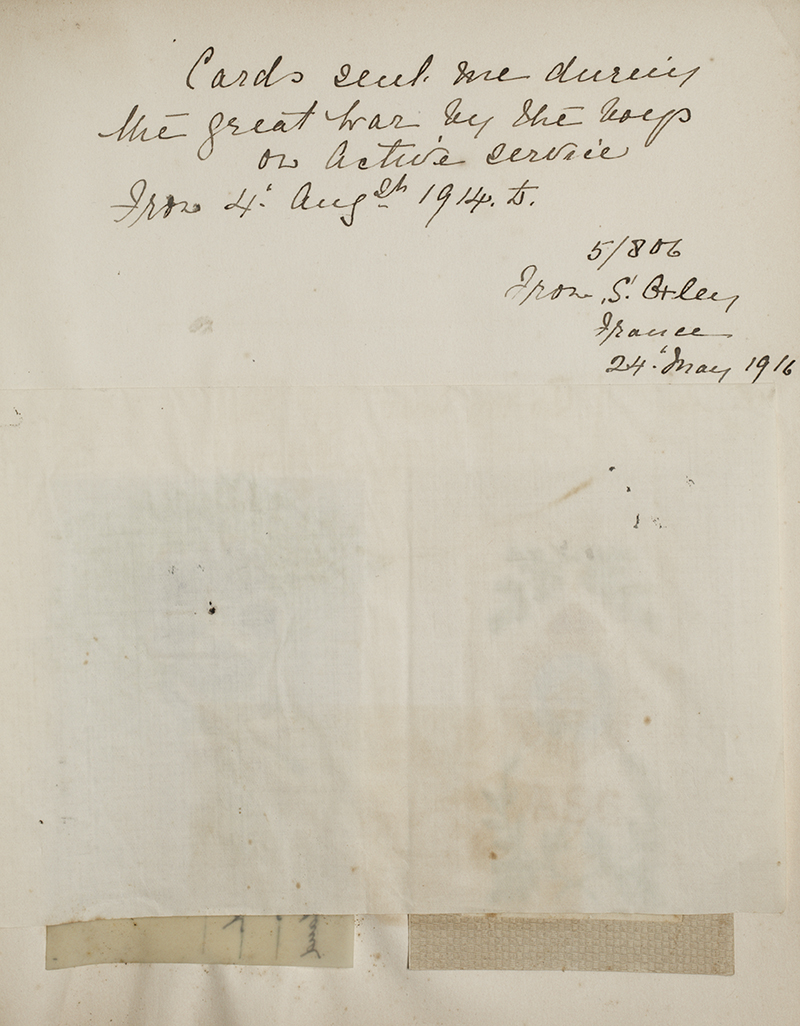 Cards sent me during
the great War by the boys
on Active service
From 4 Aug 1914. to.
5/806
From S. Oxley
France
24 May 1916